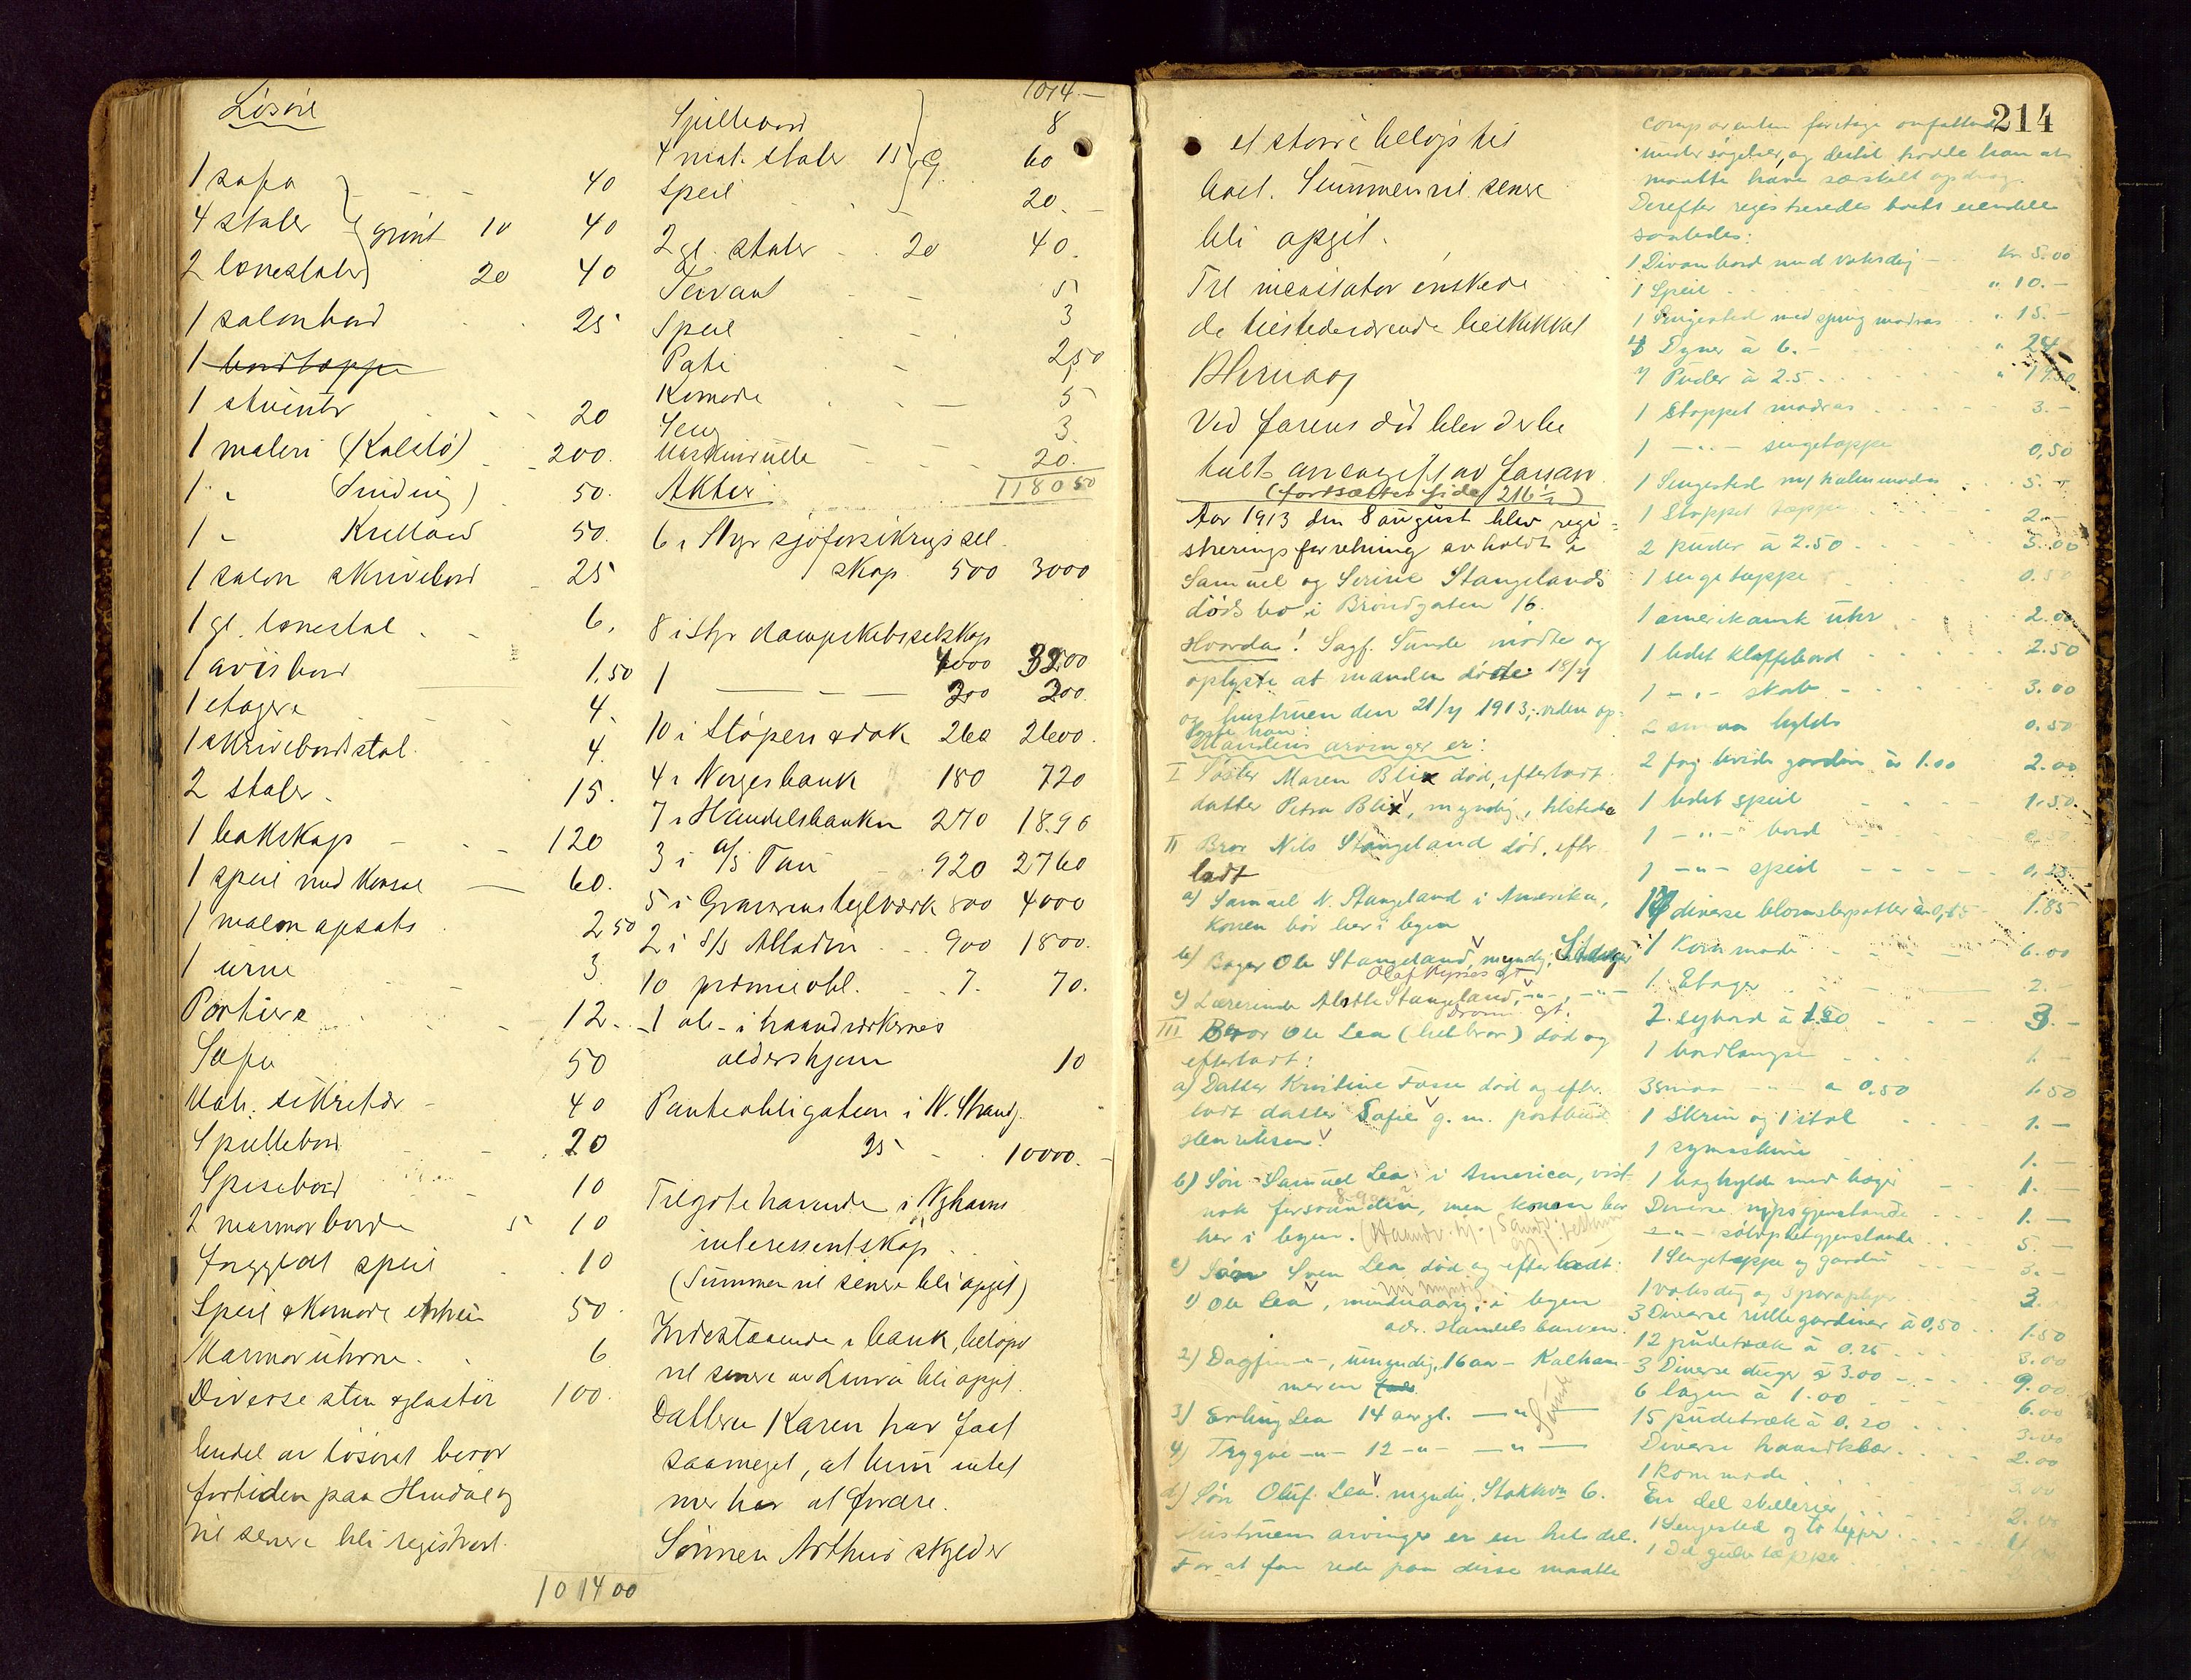 Løsøre
1 sofa - - - 40
4 stoler grønt 10 40
2 lænestoler 20 40
1 salonbord 25
1 bordteppe
1 stuentr 20
1 maleri (Kalstø) 200.
1 " (Sinding) 50.
1 " Krilland 50.
1 salon skrivebord 25
1 gl. lænestol 6.
1 avisbord 1.50
1 etagere 4.
1 skrivebordstol 4.
2 stoler 15.
1 bokskap 120
1 speil med konsol 60.
1 malm opsats 2.50
1 urne 3.
Portiere 12.
Sofa 50
Mah. sekretær 40
Spillebord 20
Spisebord 10
2 marmorborde 5 10
Forgyldt speil 10
Speil & komode etskui 50.
Marmor uhrne 6
Diverse sten & glastøi 100.
Endel av løsøret beror
fortiden paa Hindal og
vil senere bli registrert.
101400
1014.—
Spillebord 8
4 mah. stoler 15 60
Speil 20.
2 gl. stoler 20 40.
Servant 5
Speil 3
Pate 2,50
Komode 5
Seng 3.
Maskinrulle 20.
118050
Aktier
6 i Nye sjøforsikrings sel
skap 500 3000
8 i Styr dampskibsselskap
4000 3200
1 — — — 200 200.
10 i Støperi & dok 260 2600.
4 i Norges bank 180 720
7 i Handelsbanken 270 18.90
3 i a/s Tau 920 2760
5 i Gravarens teglværk 800 4000
2 i S/S Alladin 900 1800.
10 præmieobl. 7. 70.
1 ob- i haandværkernes
aldershjem 10
Panteobligation i N. Strandg.
35 10000.
Tilgotehavende i Nyhavns
interessentskap
(Summen vil senere bli opgit)
Indestaaende i bank, beløpet
vil senere av Laura bli opgit.
Datteren Karen har faat
saameget, at hun intet
mer har at fordre.
Sønnen Arthur skylder
et større beløp til
boet. Summen vil senere
bli opgit.
Til incasator ønskede
de tilstedeværende beskikket
B Hernaag
Ved farens død blev der be
talt arveavgift av farsarv
(fortsættes side 216 1/2)
Aar 1913 den 8 august blev regi=
streringsforretning avholdt i
Samuel og Serine Stangelands
dødsbo i Brøndgaten 16.
Hvorda! Sagf. Sunde mødte og
oplyste at manden døde 18/7
og hustruen den 21/7 1913; videre op-
lyste han:
Mandens arvinger er:
I Søster Maren Blix død, efterladt
datter Petra Blix, myndig, tilstede
II Bror Nils Stangeland død, efter
ladt
a) Samuel N. Stangeland i Amerika,
konen bor her i byen
b) Bager Ole Stangeland, myndig, Stavanger
Olaf Kyrres gt
c) Lærerinde Alette Stangeland, -"-, -"-
Dronn gt.
III Bror Ole Lea (helbror) død og
efterladt:
a) Datter Kristine Fosse død og efter-
ladt datter Sofie g. m. postbud
Henriksen
b) Søn Samuel Lea i America, vist-
nok forsvunden, men konen bor
her i byen.
c) Søn Sven Lea død og efterladt:
1) Ole Lea, mindreaarig, i byen
adr. Handelsbanken.
2) Dagfin -"-, umyndig, 16 aar - Kalham-
meren
3) Erling Lea 14 aar gl. -"-
4) Trygve -"- 12 -"- -"-
d) Søn Oluf Lea myndig, Stokkvn 6.
Hustruens arvinger er en hel del.
For at faa rede paa disse maatte
214
comparenten foretage omfattende
undersøgelser, og dertil trodde han at
maatte have særskilt opdrag.
Derefter registreredes boets eiendele
saaledes:
1 Divanbord med voksdug kr. 5.00
1 Speil " 10.—
1 Sengested med spring madras " 15.—
4 Dyner à 6.— " 24
7 Puder à 2.5 " 17.50
1 Stoppet madras 3.—
1 -"- sengeteppe 0,50
1 Sengested m/ halmmadras 5.—
1 Stoppet teppe 2.—
2 puder à 2.50 5.00
1 sengeteppe 0.50
1 amerikansk uhr 2.00
1 lidet klaffebord 2.50
1 -"- skab 3.00
2 smaa hylder 0.50
2 fag hvide gardin à 1.00 2.00
1 lidet speil 1.50.
1 -"- bord 0.50
1 -"- speil 0,25
diverse blomsterpotter à 0,15 1.85
1 Kommode 6.00
1 Etager 2.—
2 sybord à 1.50 3.—
1 bordlampe 1.—
3 smaa -"- a 0.50 1.50
1 Skrin og 1 stol 1.—
1 symaskine 1.—
1 boghylde med bøger 1.—
Diverse nipsgjenstande 1.—
-"- sølvpletgjenstande 5.—
1 Sengeteppe og gardin 3.—
1 voksdug og 3 paraplyer 3.
3 Diverse rullegardiner à 0,50 1.50
12 pudetræk à 0.25 3.00
3 Diverse duger à 3.00 9.00
6 lagen à 1.00 6.00
15 pudetræk à 0.20 3.00
Diverse haandklær 2.00
1 Kommode 3.00
En del skillerier 2.00
1 Sengested og to tepper
1 Del gule tepper